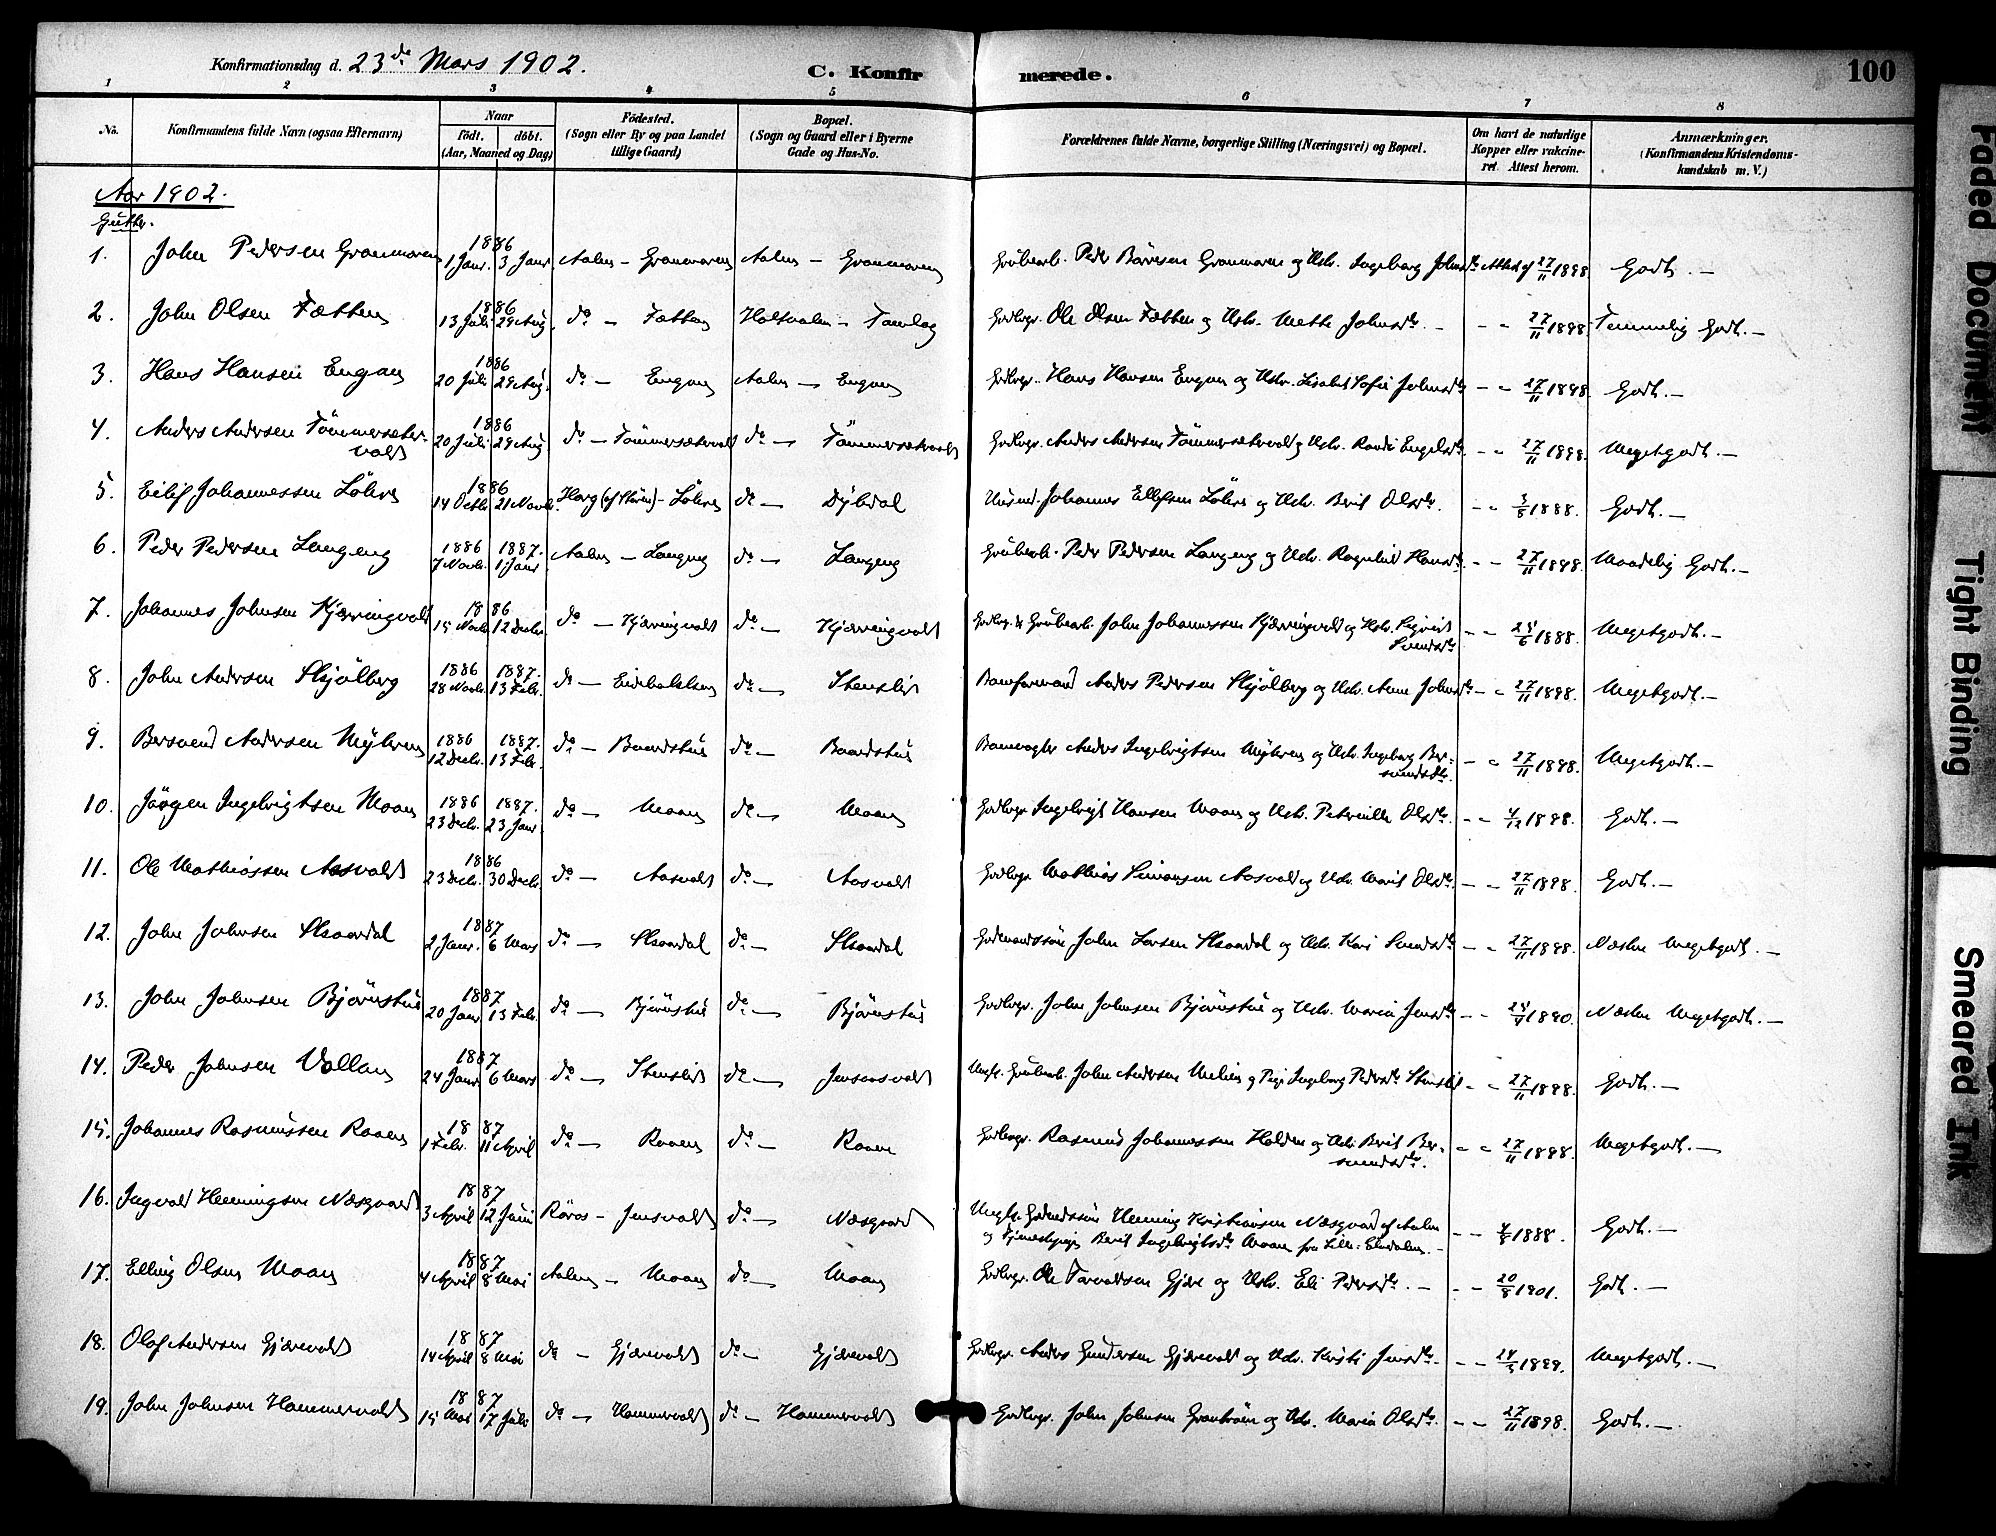 Konfirmationsdag d. 23de Mars 1902.
C. Konfirmerede.
100
1 2 3 4 5 6 7 8
No.
Konfirmandens fulde Navn (ogsaa Efternavn)
Naar
födt. döbt.
(Aar, Maaned og Dag)
Födested.
(Sogn eller By og paa Landet
tillige Gaard)
Bopæl.
(Sogn og Gaard eller i Byerne
Gade og Hus-No.
Forældrenes fulde Navne, borgerlige Stilling (Næringsvei) og Bopæl.
Om havt de naturlige
Kopper eller vakcine-
ret. Attest herom.
Anmærkninger.
(Konfirmandens Kristendoms-
kundskab m. V.)
Aar 1902.
Gutter.
1. John Pedersen Granmoren 1886 1 Janr. 3 Janr. Aalen – Granmoren Aalen – Granmoren Grubearb. Peder Börresen Granmoren og Hstr. Ingeborg Johnsdtr. Attest af 27/11 1898 Godt. –
2. John Olsen Tætten 1886 13 Juli 29 Aug. do – Tætten Holtaalen – Gdbrgr. Ole Olsen Tætten og Hstr. Mette Johnsdtr. – – " 27/11 1898 Temmelig Godt. –
3. Hans Hansen Engan 1886 20 Juli 29 Aug. do – Engan Aalen – Engan Gdbrgr. Hans Hansen Engan og Hstr. Lisabet Sofie Johnsdtr. – " 27/11 1898 Godt. –
4. Anders Andersen Tömmersæter-
vold 1886 20 Juli 29 Aug. do – Tömmersætervold do – Tömmersætervold Gdbrgr. Anders Andersen Tömmersætervold og Hstr. Randi Engelsdtr. – " 27/11 1898. Megetgodt. –
5. Eilif Johannessen Löhre 1886 14 Octbr. 21 Novbr. Horg (af Stören) – Löhre do – Dybdal Johannes Ellefsen Löhre og Hstr. Berit Olsdtr. – " 3/8 1888. Godt. –
6. Peder Pedersen Langeng 1886 7 Novbr. 1887. 1 Janr. Aalen – Langeng do – Langeng Grubearb. Peder Pedersen Langeng og Hstr. Ragnhild Hansdtr. – " 27/11 1898. Maadelig Godt. –
7. Johannes Johnsen Kjærringvold 1886 15 Novbr. 12 Decbr. do – Kjærringvold do – Kjærringvold Gdbrgr. & Grubearb. John Johannessen Kjærringvold og Hstr. Sigrid
Svendsdtr. – " 25/6 1888. Megetgodt. –
8. John Andersen Skjölberg 1886 28 Novbr. 1887. 13 Febr. do – do – Stenslid Anders Pedersen Skjölberg og Hstr. Anne Johnsdtr. – " 27/11 1898. Megetgodt. –
9. Bersvend Andersen Myhren 1886 12 Decbr. 1887. 13 Febr. do – Baardshus do – Baardshus Anders Ingebrigtsen Myhren og Hstr. Ingeborg Ber-
svendsdtr. – " 27/11 1898. Megetgodt. –
10. Jörgen Ingebrigtsen Moan 1886 23 Decbr. 1887. 23 Janr. do – Moan do – Moan Gdbrgr. Ingebrigt Hansen Moan og Hstr. Petronille Olsdtr. – " 4/12 1898. Godt. –
11. Ole Mathiassen Aasvold 1886 23 Decbr. 30 Decbr. do – Aasvold do – Aasvold Gdbrgr. Mathias Simonsen Aasvold og Hstr. Marit Olsdtr. – " 27/11 1898. Godt. –
12. John Johnsen Skaardal 1887 2 Janr. 6 Mars do – Skaardal do – Skaardal Gaardmandssön John Larsen Skaardal og Hstr. Kari Svendsdtr. – " 27/11 1898. Næsten Megetgodt. –
13. John Johnsen Bjørnshus 1887 20 Janr. 13 Febr. do – Bjørnshus do – Bjørnshus Gdbrgr. John Johnsen Bjørnshus og Hstr. Maria Jensdtr. – " 25/4 1890. Næsten Megetgodt. –
14. Peder Johnsen Vollan 1887 24 Janr. 6 Mars do – Stenslid do – Jensasvold Ungk. Grubearb. John Andersen og Pige Ingeborg Pedersdtr. Stenslid – " 27/11 1898. Godt. –
15. Johannes Rasmussen Raaen 1887 1 Febr. 11 April do – Raaen do – Raaen Gdbrgr. Rasmus Johannessen Holden og Hstr. Berit Ber-
svendsdtr. – " 27/11 1898. Megetgodt. –
16. Ingvald Henningsen Næsgaard 1887 3 April 12 Juni Röros – Jensvold do – Næsgaard Ungk. Henning Kristiansen Næsgaard af Aalen
og Tjenestepige Berit Ingebrigtsdtr. Moan fra Lille-Elvdalen. – – – 4/8 1888. Godt. –
17. Elling Olsen Moan 1887 4 April 8 Mai Aalen – Moan do – Moan Gdbrgr. Ole Torvaldsen Gjære og Hstr. Eli Pedersdtr. – – " 20/8 1901. Godt. –
18. Olaf Andersen Gjærevold 1887 14 April 8 Mai do – Gjærevold do – Gjærevold Gdbrgr. Anders Gundersen Gjærevold og Hstr. Kirsti Jensdtr. – – " 1899. Megetgodt. –
19. John Johnsen Hammervold 1887 15 Mai 17 Juli do – Hammervold do – Hammervold Gdbrgr. John Johnsen Grantröen og Hstr. Maria Olsdtr. – " 27/11 1898. Godt. –
Faded Document
Tight Binding
Smeared Ink